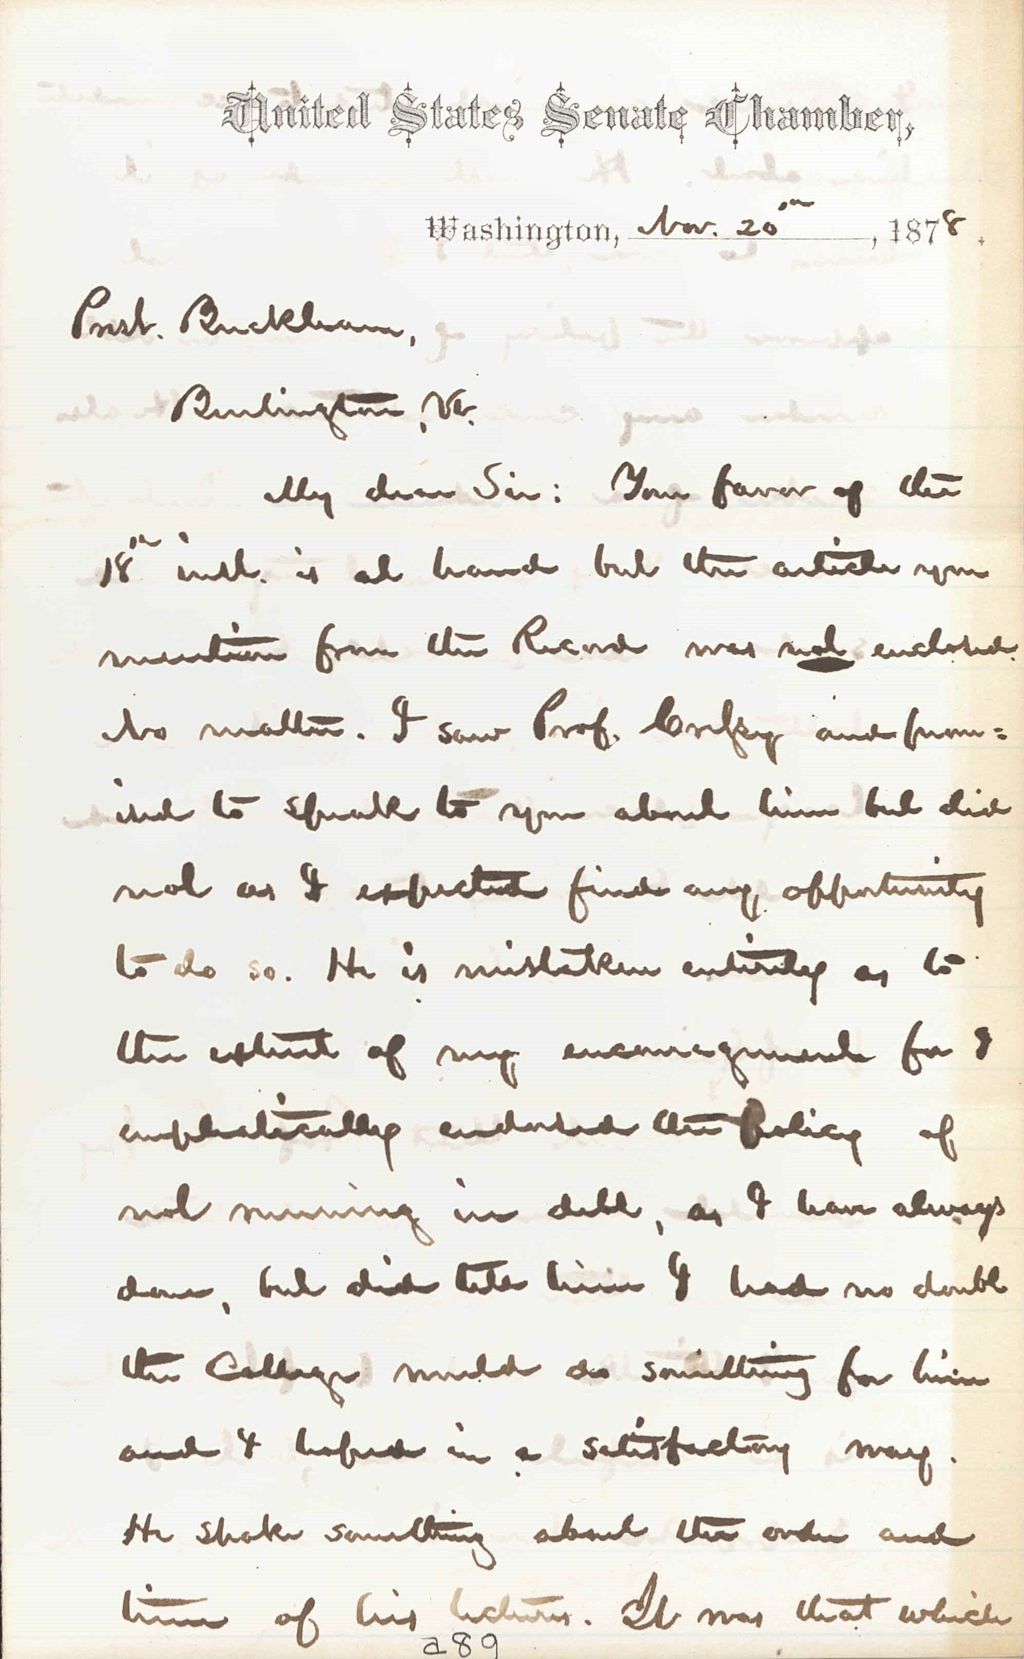 United States Senate Chamber,
Washington, Nov. 20th, 1878.
Prest. Buckham,
Burlington, Vt.
My dear Sir: Your favor of the
18th inst. is at hand but the article you
mention from the Record was not enclosed.
No matter. I saw Prof. and prom=
ised to speak to you about him but did
not as I expected find any opportunity
to do so. He is mistaken entirely as to
the extent of my encouragement for I
emphatically endorsed the policy of
not running in debt, as I have always
done, but did tell him I had no doubt
the College would do something for him
and I hoped in a satisfactory way.
He spoke something about the order and
time of his lectures. It was that which
a89